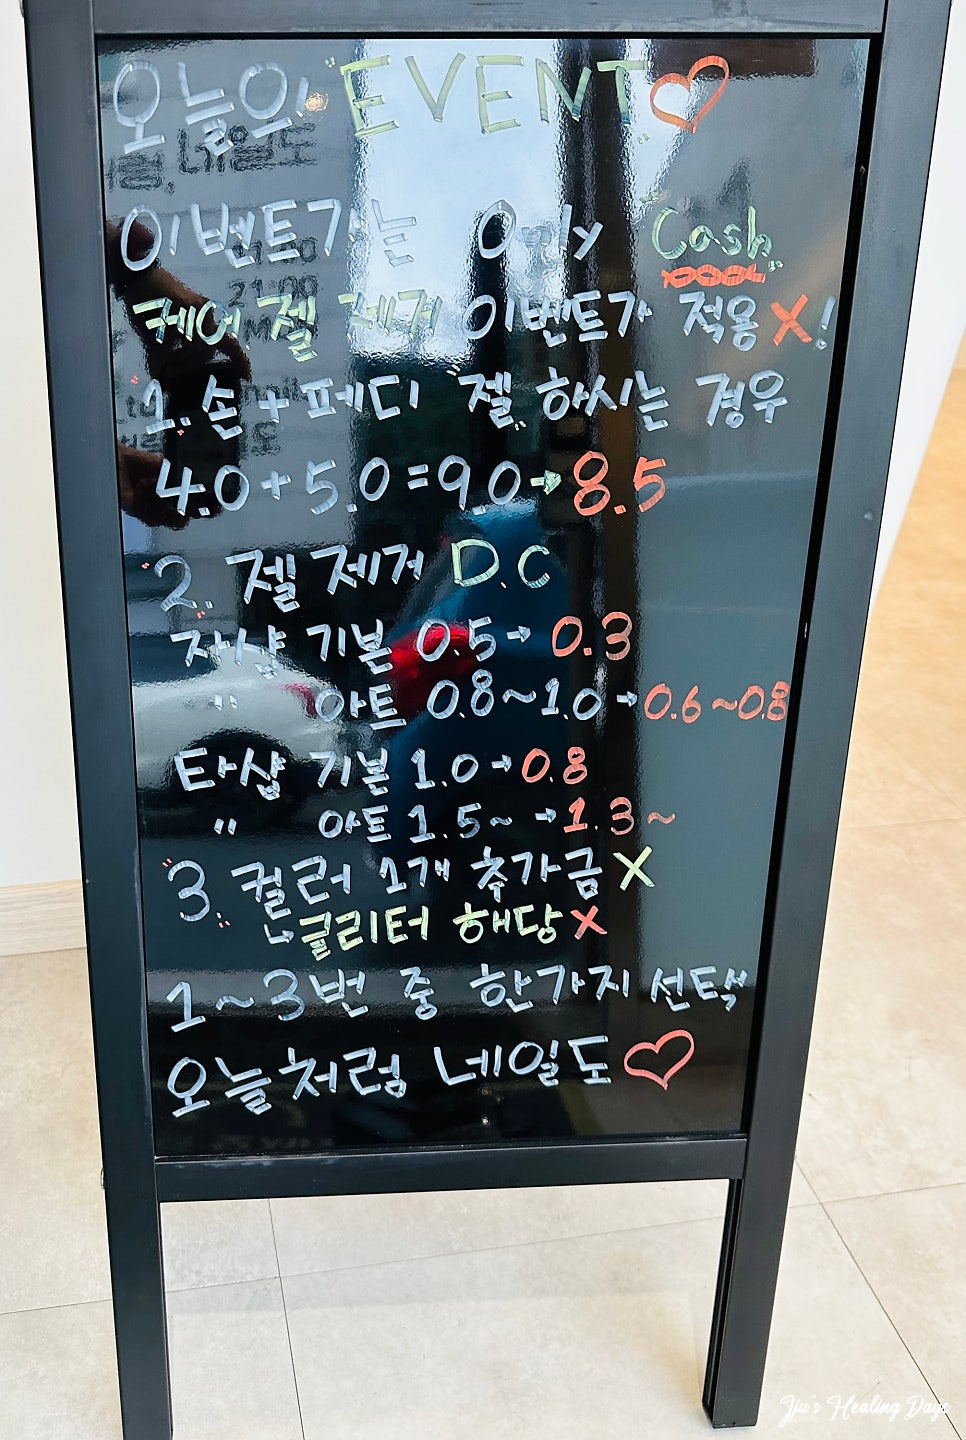 오늘의 "EVENT"♡
이벤트가는 Only "Cash"
케어 젤 제거 이벤트가 적용 X!
1. 손 + 페디 "젤" 하시는 경우
4.0+5.0=9.0→8.5
2. 젤 제거 D.C
자샵 기본 0.5→0.3
" 아트 0.8~1.0→0.6~0.8
타샵 기본 1.0→0.8
" 아트 1.5~→1.3~
3. 컬러 1개 추가금 X
↳글리터 해당 X
1~3번 중 한가지 선택
오늘처럼 네일도♡
Jju's Healing Days